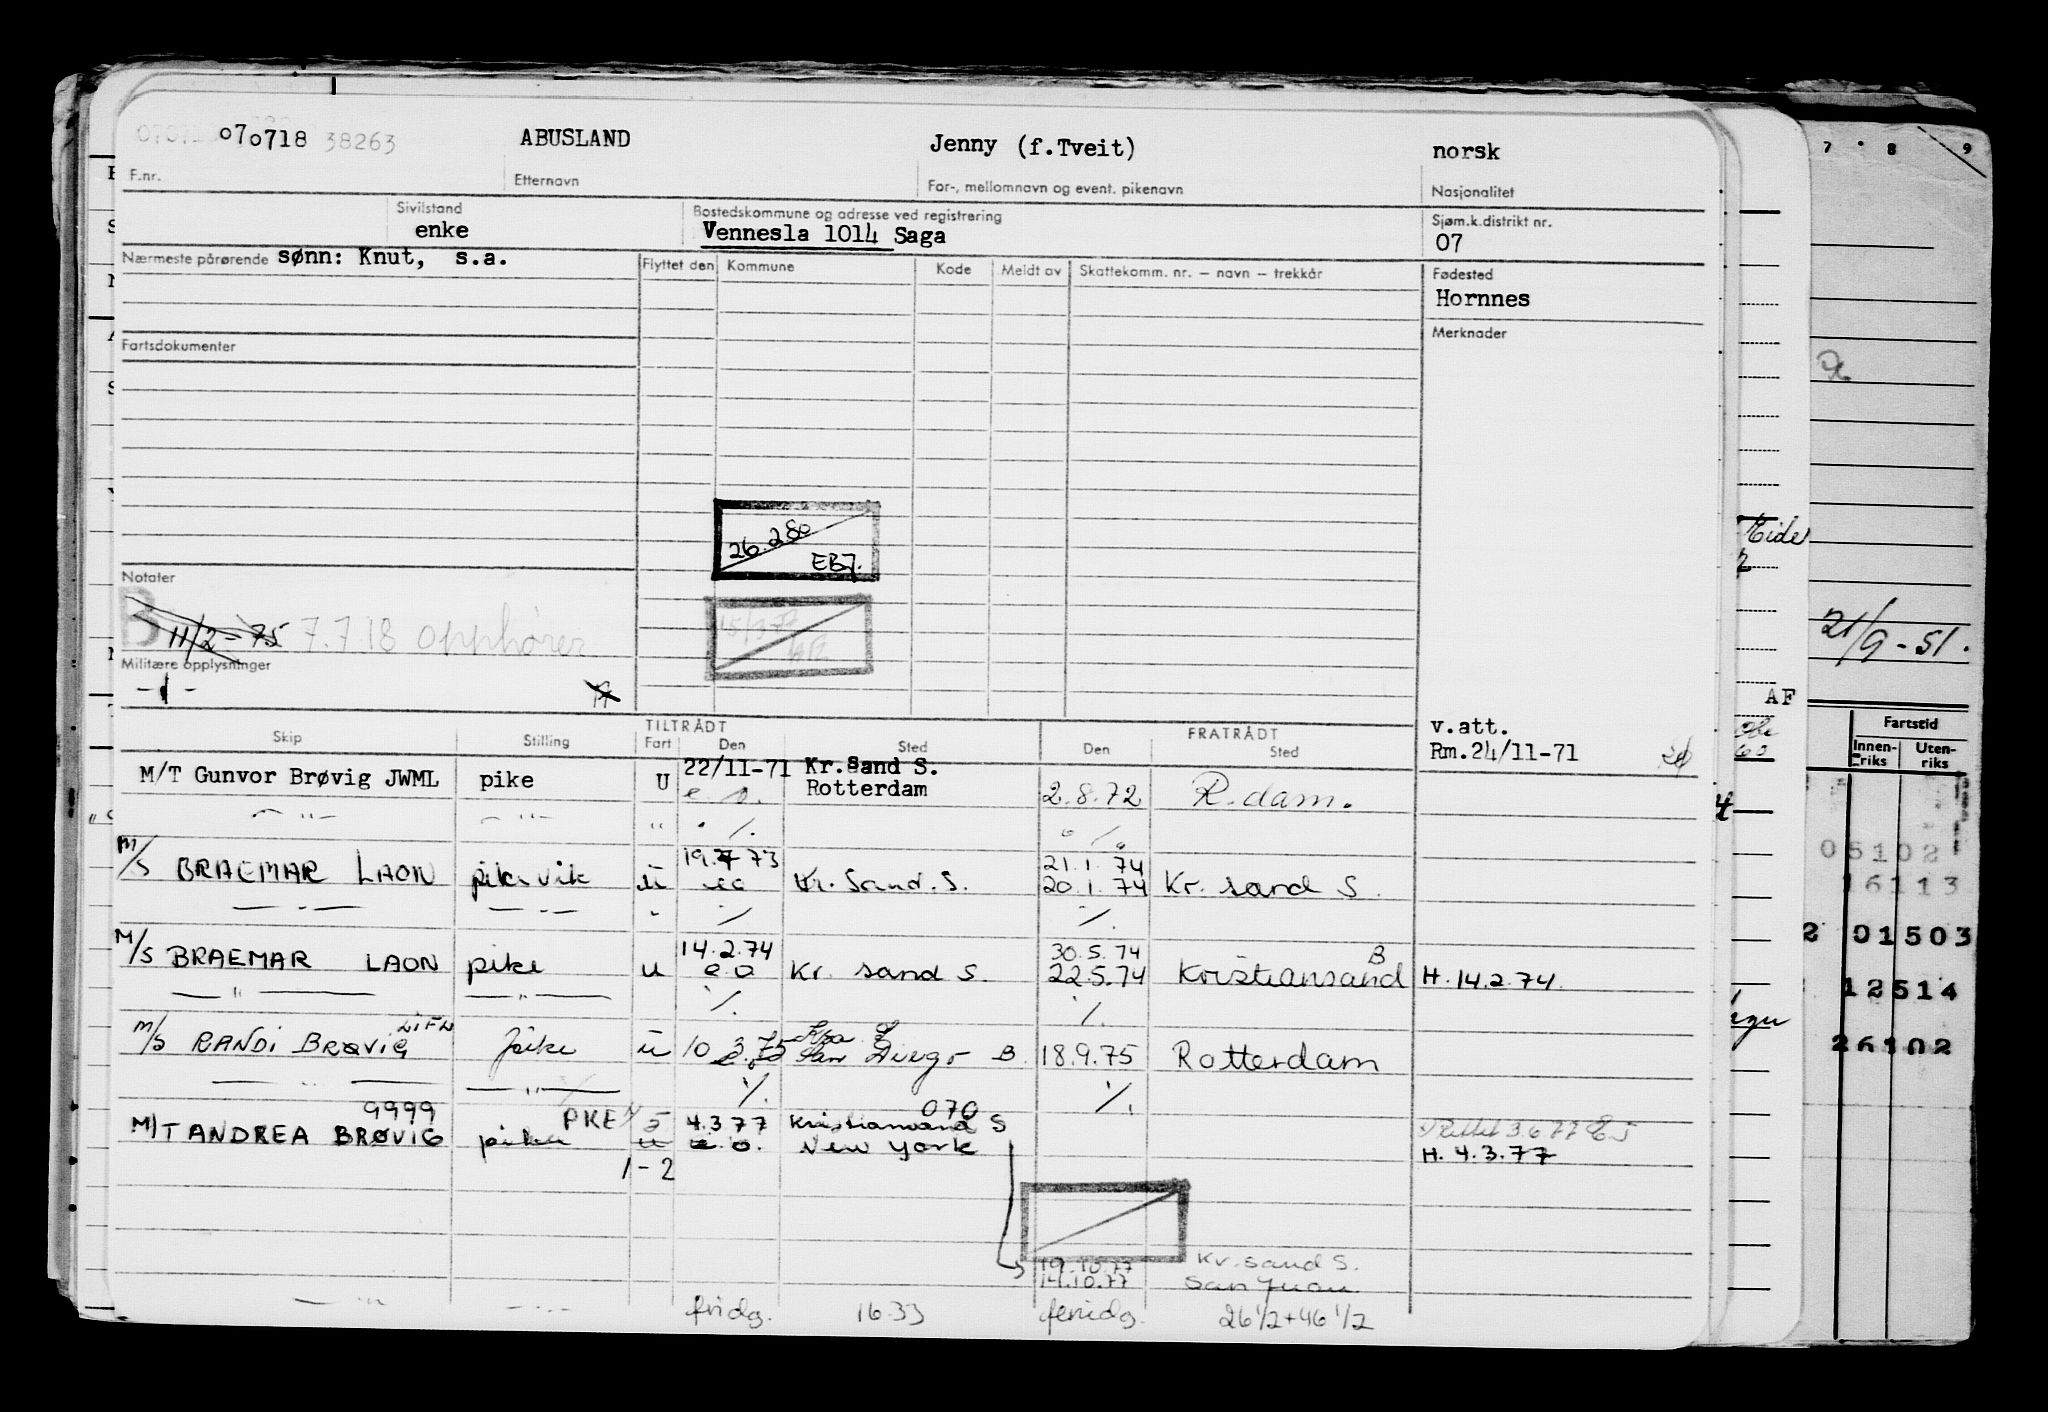 070718 38263 ABUSLAND Jenny (f.Tveit) norsk
F.nr. Etternavn For-, mellomnavn og event. pikenavn Nasjonalitet
Sivilstand Bostedskommune og adresse ved registrering Sjøm.k.distrikt nr.
enke Vennesla 1014 Saga 07
Nærmeste pårørende sønn: Knut, s.a. Flyttet den Kommune Kode Meldt av Skattekomm. nr. – navn – trekkår Fødested
Hornnes
Fartsdokumenter Merknader
26.2.80
EBJ.
Notater
B 11/2-75 7.7.18 opphører
15/3 77
Militære opplysninger
-1-
TILTRÅDT FRATRÅDT v.att.
Skip Stilling Fart Den Sted Den Sted Rm.24/11-71
M/T Gunvor Brøvig JWML pike U 22/11-71 Kr.Sand S.
e.o. Rotterdam 2.8.72 R.dam.
— " — — " — " ./. ./.
M/S BRAEMAR LAON pike vik u 19.7 73 21.1.74
eo Kr. Sand. S. 20.1.74 Kr. sand S.
— " — — " — " ./. ./.
M/S BRAEMAR LAON pike u 14.2.74 30.5.74 B
e o Kr. sand S. 22.5.74 Kristiansand H. 14.2.74.
— " — — " — ./. ./.
M/S RANDI BRØVIG pike u 10.3.75
e.o San Diego B. 18.9.75 Rotterdam
— " — — " — ./. ./.
9999 PKE 070
M/T ANDREA BRØVIG pike 5 4.3 77 Kristiansand S 3.6 77
u e.o. New York H. 4.3.77
1-2
19.10.77 Kr. sand S.
14.10.77 San Juan
— " — — " — fridg. 16.33 feridg. 26 1/2+46 1/2
7 8 9
21/9-51.
AF
Fartstid
Innenriks Utenriks
05102
16113
2 01503
12514
26102